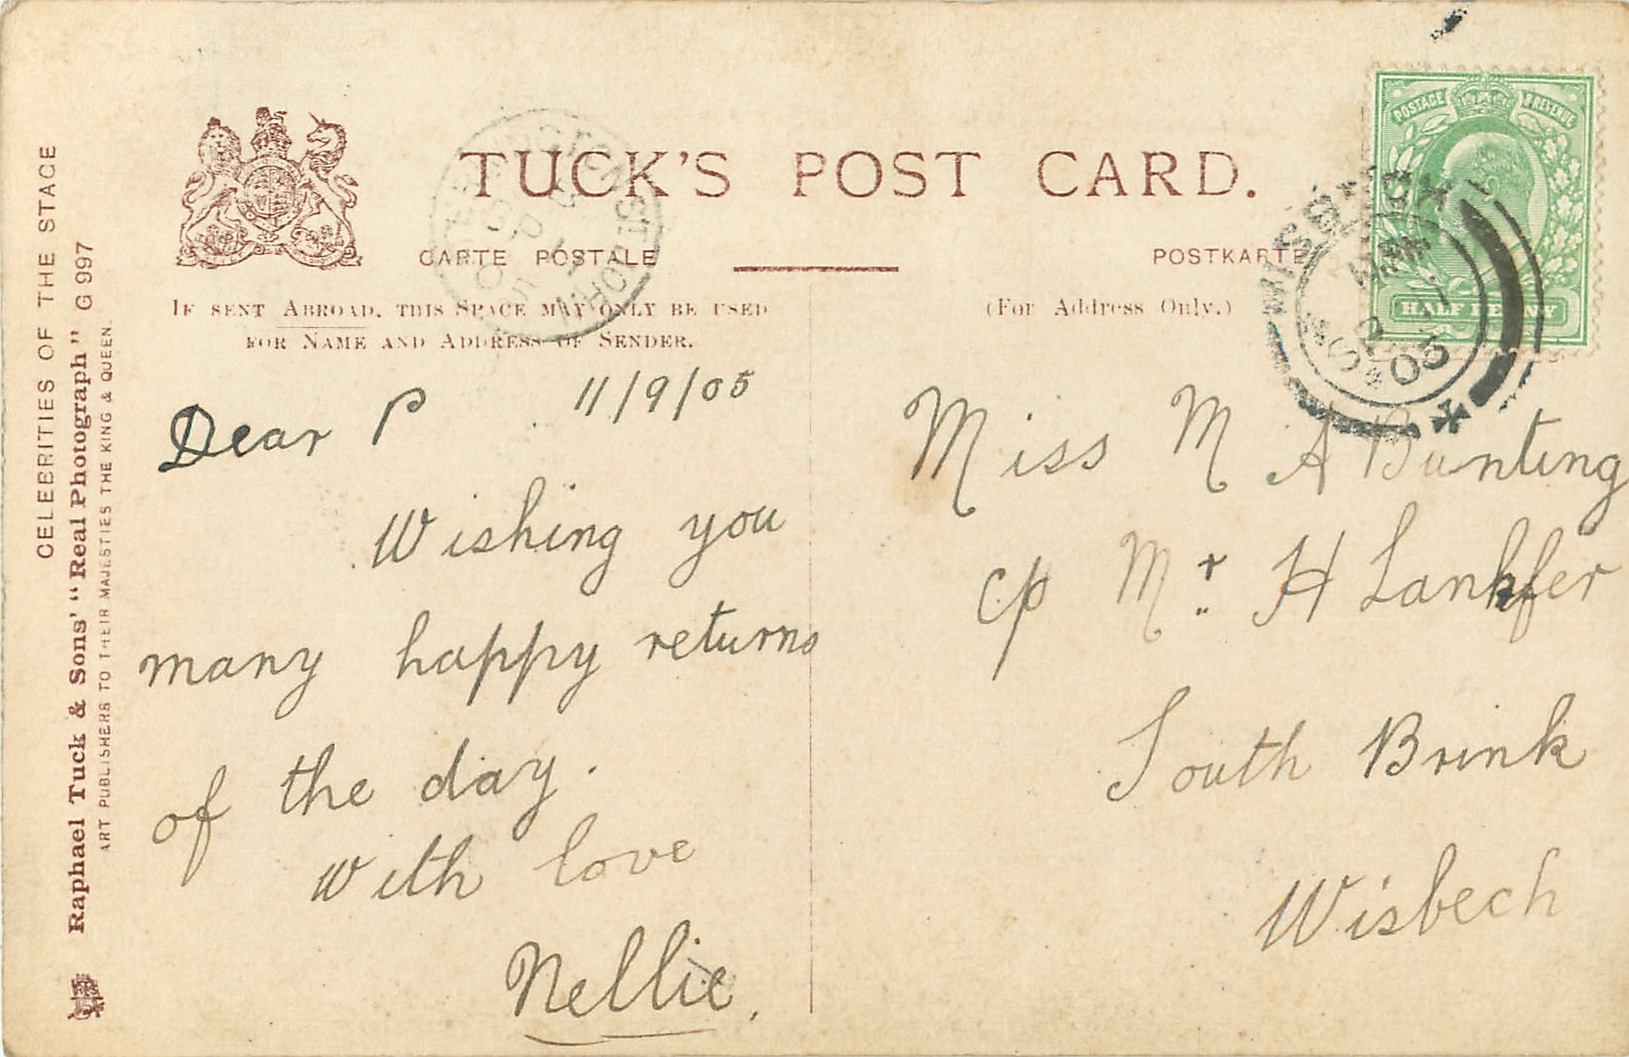 CELEBRITIES OF THE STAGE
Raphael Tuck & Sons' "Real Photograph" G 997
ART PUBLISHERS TO THEIR MAJESTIES THE KING & QUEEN.
TUCK'S POST CARD.
CARTE POSTALE
POSTKARTE
If sent Abroad, this Space may only be used
for Name and Address of Sender.
(For Address Only.)
POSTAGE & REVENUE
HALF PENNY
WISBECH
SP 11
05
ST JOHN
SP 11
05
11/9/05
Dear P
Wishing you
many happy returns
of the day.
With love
Nellie.
Miss M A Bunting
c/o Mr H Lankfer
South Brink
Wisbech